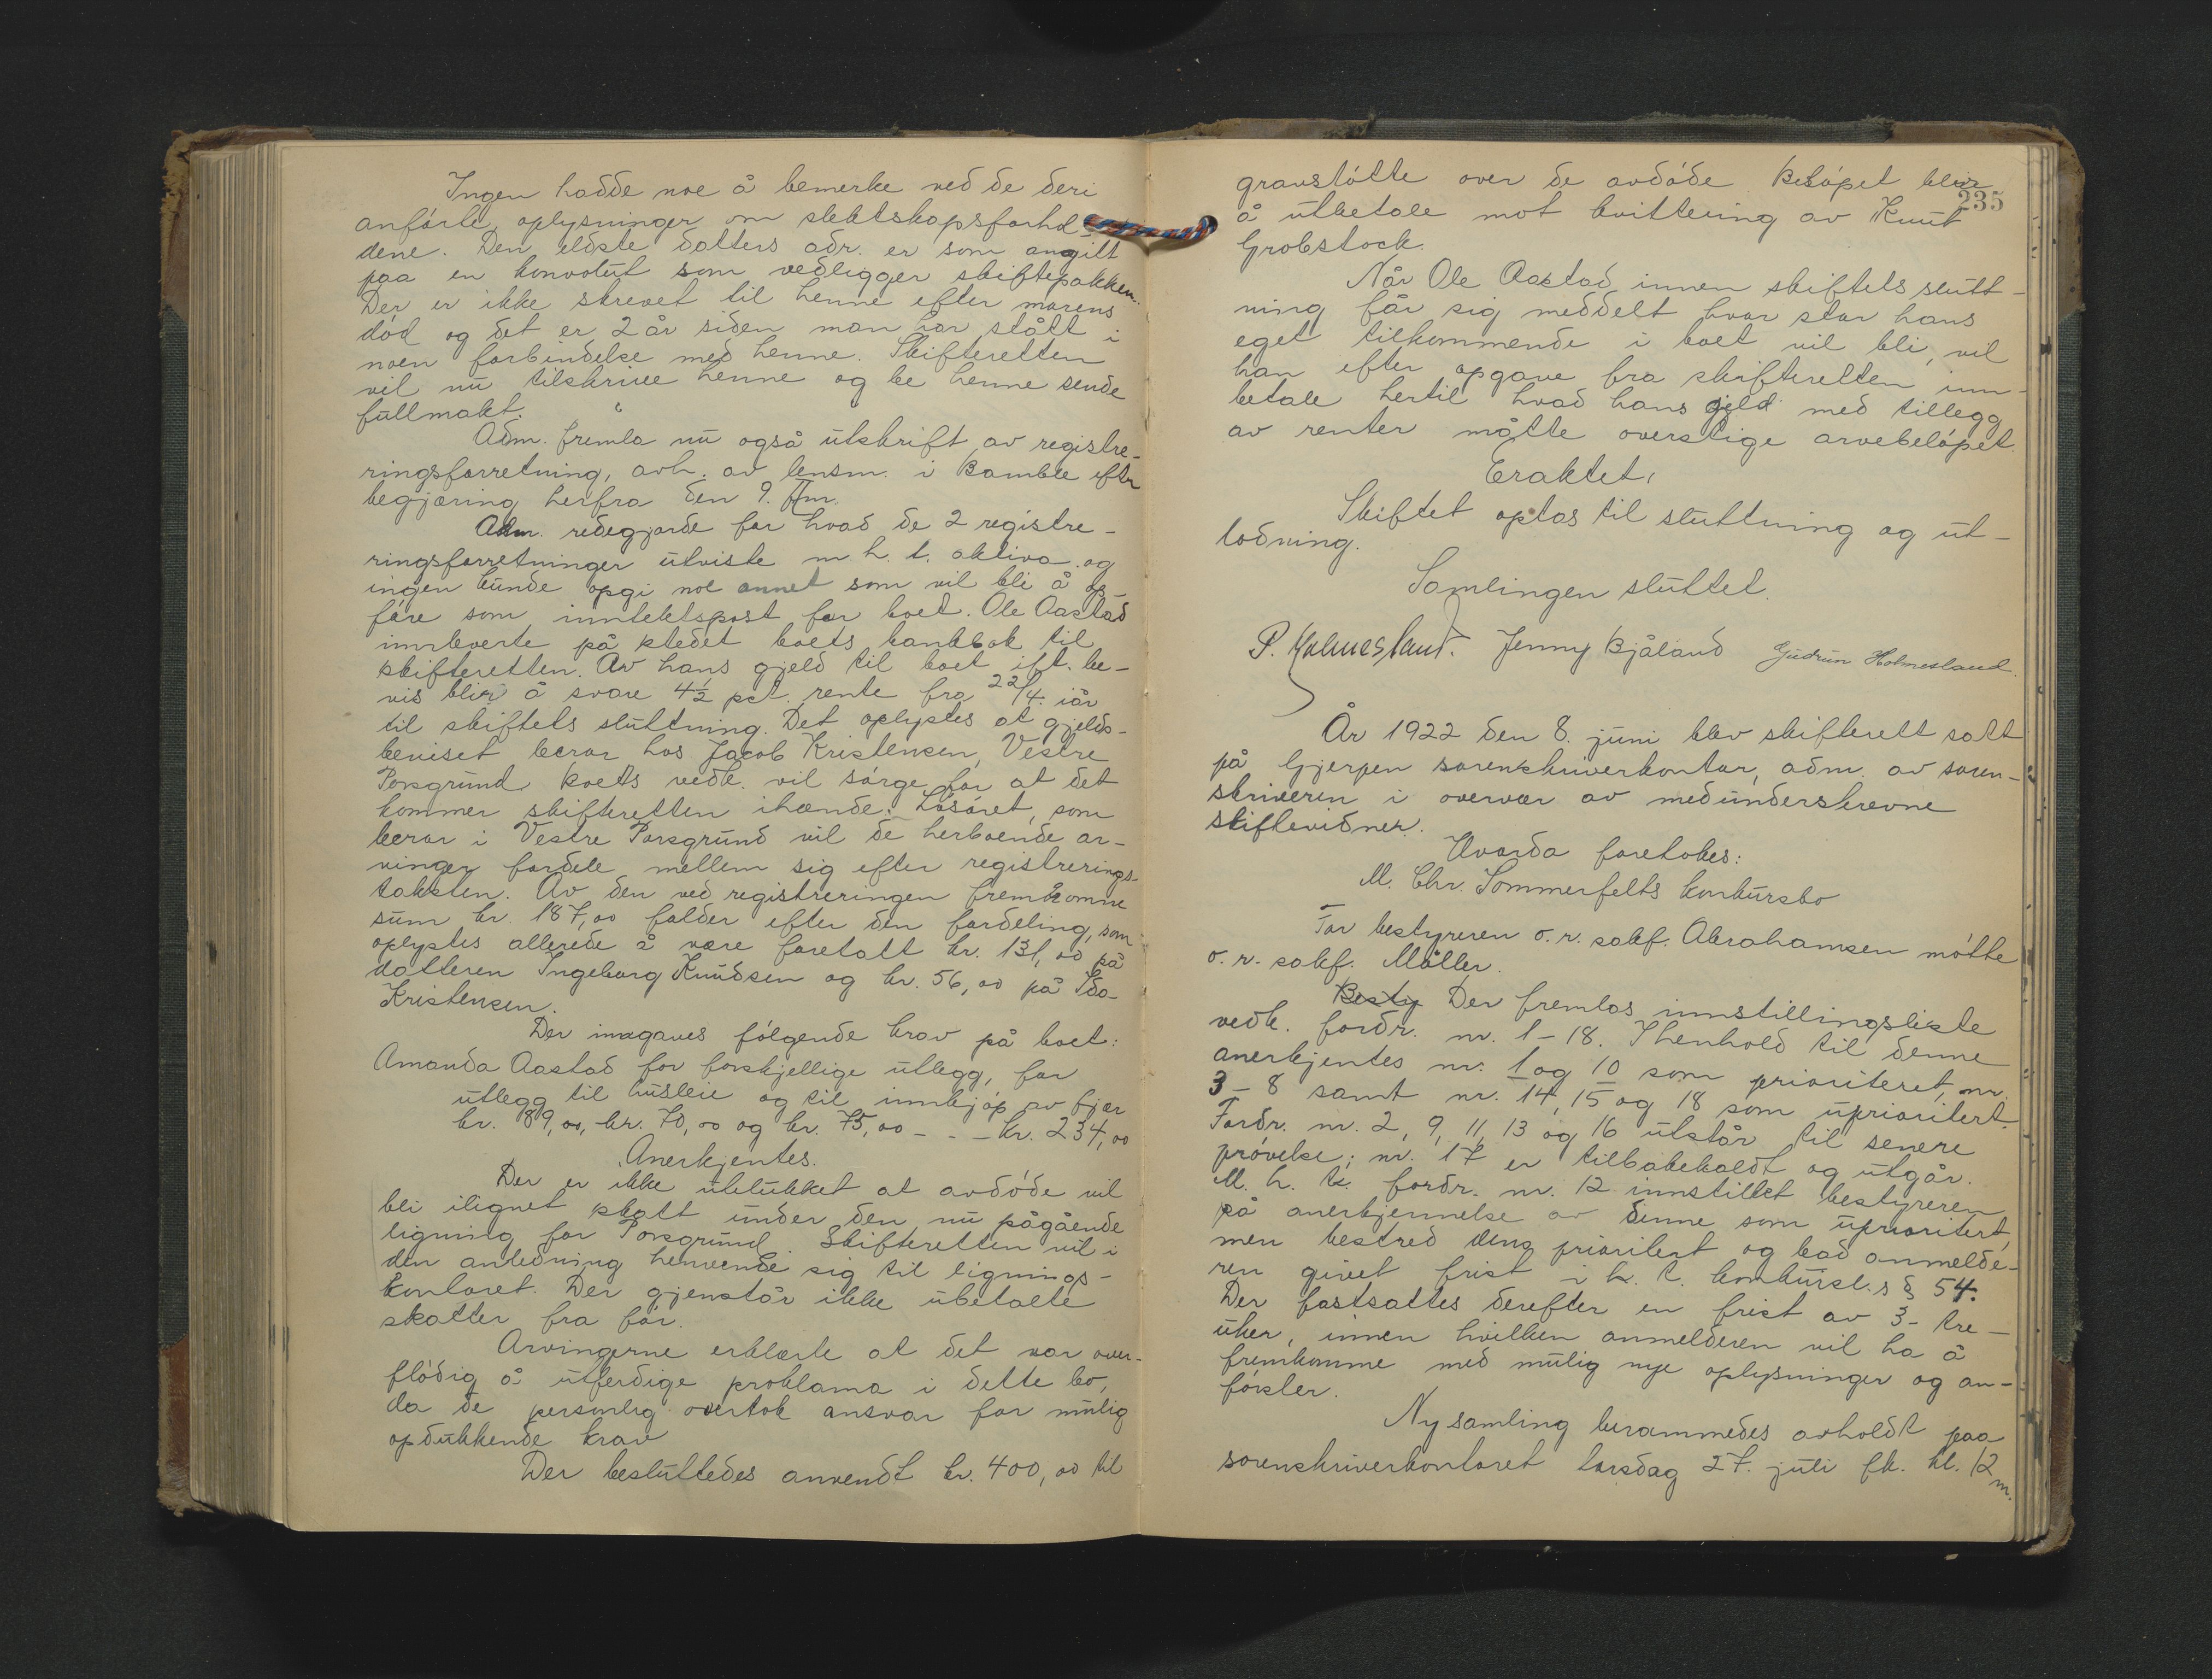 Ingen hadde noe å bemerke ved de deri
anförte oplysninger om slektskapsforhol-
dene. Den eldste datters adr. er som angitt
paa en konvolut som vedligger skiftepakken.
Der er ikke skrevet til henne efter morens
död og det er 2 år siden man har stått i
noen forbindelse med henne. Skifteretten
vil nu tilskrive henne og be henne sende
fullmakt.
Adm. fremla nu også utskrift av registre-
ringsforretning, avh. av lensm. i Bamble efter
begjæring herfra den 9. f.m.
Adm. redegjorde for hvad de 2 registre-
ringsforretninger utviste m. h. t. aktiva og
ingen kunde opgi noe annet som vil bli å op-
före som inntektspost for boet. Ole Aastad
innleverte på stedet boets bankbok til
skifteretten. Av hans gjeld til boet ift. be-
vis blir å svare 4½ pct. rente fra 22/4. iår
til skiftets sluttning. Det oplystes at gjelds-
beviset beror hos Jacob Kristensen, Vestre
Porsgrund. Boets vedk. vil sörge for at det
kommer skifteretten ihænde. Lösöret, som
beror i Vestre Porsgrund vil de herboende ar-
vinger fordele mellem sig efter registrerings-
taksten. Av den ved registreringen fremkomne
sum kr. 187,00 falder efter den fordeling, som
oplystes allerede å være foretatt kr. 131,00 på
datteren Ingeborg Knudsen og kr. 56,00 på Ida
Kristensen.
Der inngaves fölgende krav på boet:
Amanda Aastad for forskjellige utlegg, for
utlegg til husleie og til innkjöp av fjær
kr. 89,00, kr. 70,00 og kr. 75,00 - - - kr. 234,00
Anerkjentes.
Der er ikke utelukket at avdöde vil
bli ilignet skatt under den nu pågående
ligning for Porsgrund. Skifteretten vil i
den anledning henvende sig til lignings-
kontoret. Der gjenstår ikke ubetalte
skatter fra för.
Arvingerne erklærte at det var over-
flödig å utferdige proklama i dette bo,
da de personlig overtok ansvar for mulig
opdukkende krav
Der besluttedes anvendt kr. 400,00 til
235
gravstötte over de avdöde Belöpet blir
å utbetale mot kvittering av Knut
Grobstock.
Når Ole Aastad innen skiftets slutt-
ning får sig meddelt hvor stor hans
eget tilkommende i boet vil bli, vil
han efter opgave fra skifteretten inn-
betale hertil hvad hans gjeld med tillegg
av renter måtte overstige arvebelöpet.
Eraktet,
Skiftet optas til sluttning og ut-
lodning.
Samlingen sluttet.
P. Holmesland. Jenny Bjåland Gudrun Holmesland.
År 1922 den 8. juni blev skifterett satt
på Gjerpen sorenskriverkontor, adm. av soren-
skriveren i overvær av medunderskrevne
skiftevidner.
Hvorda foretokes:
M. Chr. Sommerfelts konkursbo
For bestyreren o. r. sakf. Abrahamsen mötte
o. r. sakf. Möller.
Besty Der fremlas innstillingsliste
vedk. fordr. nr. 1-18. Ihenhold til denne
anerkjentes nr. 1 og 10 som prioriteret, nr.
3-8 samt nr. 14, 15 og 18 som uprioritert.
Fordr. nr. 2, 9, 11, 13 og 16 utstår til senere
prövelse; nr. 17 er tilbakekaldt og utgår.
M. h. t. fordr. nr. 12 innstillet bestyreren
på anerkjennelse av denne som uprioritert,
men bestred dens prioritert og bad anmelde-
ren givet frist i h. t. konkursl.s § 54.
Der fastsattes derefter en frist av 3 - tre -
uker, innen hvilken anmelderen vil ha å
fremkomme med mulig nye oplysninger og an-
försler.
Ny samling berammedes avholdt paa
sorenskriverkontoret torsdag 27. juli fk. kl. 12 m.